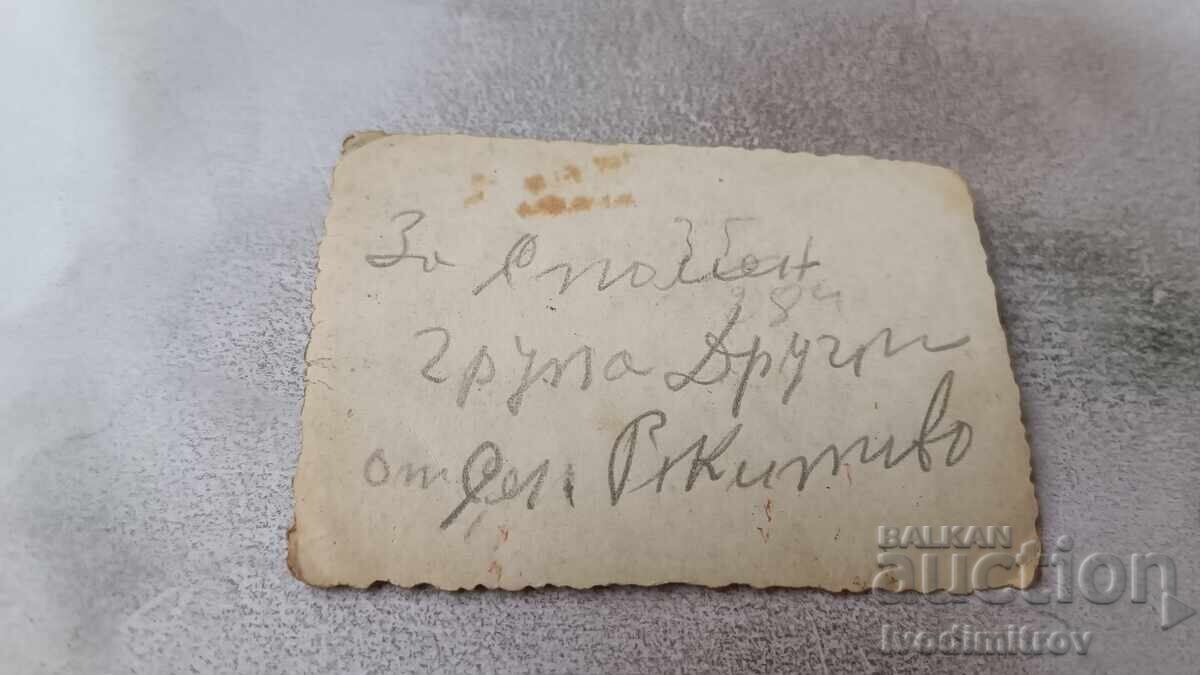 За Спомен
група Други
от Сел. Ракитово
BALKAN
auction
Ivodimitrov